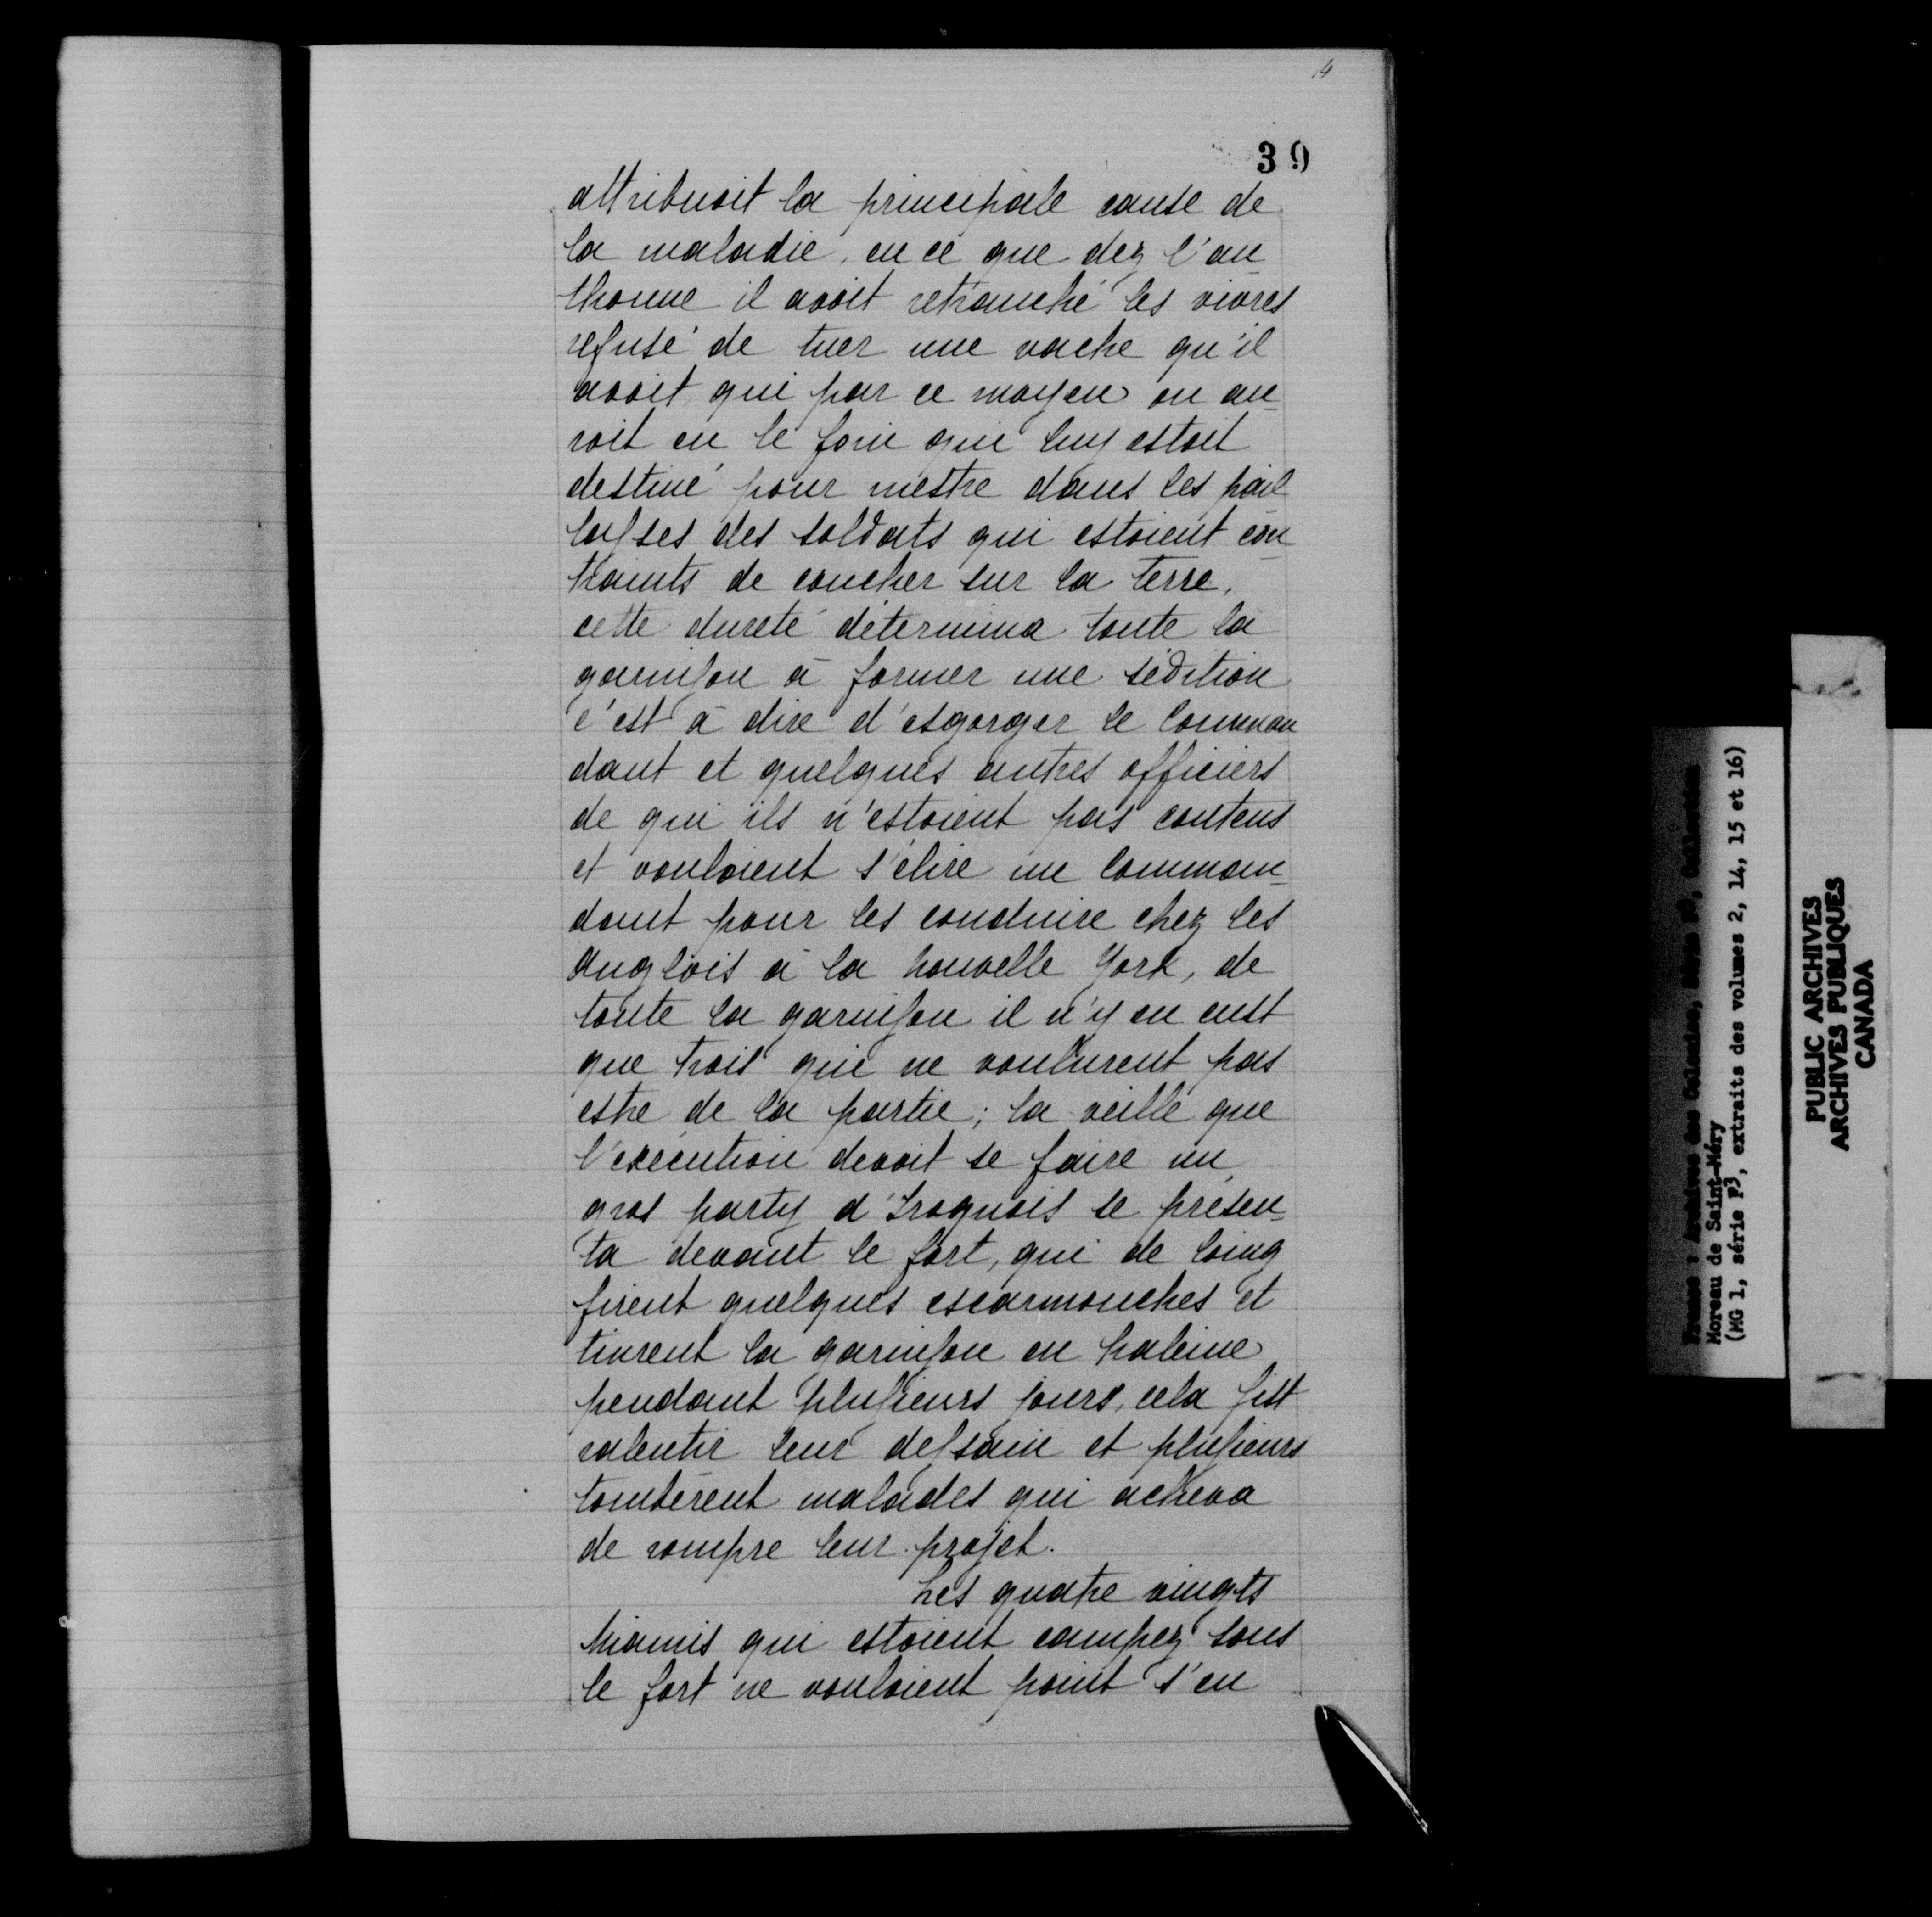 14
39
attribuoit la principale cause de
la maladie, en ce que dez l'au
thonne il avoit retranché les vivres
refusé de tuer une vache qu'il
avoit qui par ce moyen on au-
roit eu le foin qui luy estoit
destiné pour mestre dans les pail
lasses des soldats qui estoient con
traints de coucher sur la terre,
cette dureté détermina toute la
garnison à former une sédition
c'est à dire d'esgorger le comman
dant et quelques autres officiers
de qui ils n'estoient pas contens
et vouloient s'élire un comman-
dant pour les conduire chez les
anglois à la nouvelle York, de
toute la garnison il n'y en eust
que trois qui ne voulurent pas
estre de la partie; la veille que
l'exécution devoit se faire un
gros party d'Iroquois se présen-
ta devant le fort, qui de loing
firent quelques escarmouches et
tinrent la garnison en haleine
pendant plusieurs jours, cela fist
ralentir leur dessain et plusieurs
tombèrent malades qui acheva
de rompre leur projet.
Les quatre vingts
Miamis qui estoient campez sous
le fort ne vouloient point s'en
France : Archives des Colonies, série F3, Collection
Moreau de Saint-Méry
(MG 1, série F3, extraits des volumes 2, 14, 15 et 16)
PUBLIC ARCHIVES
ARCHIVES PUBLIQUES
CANADA